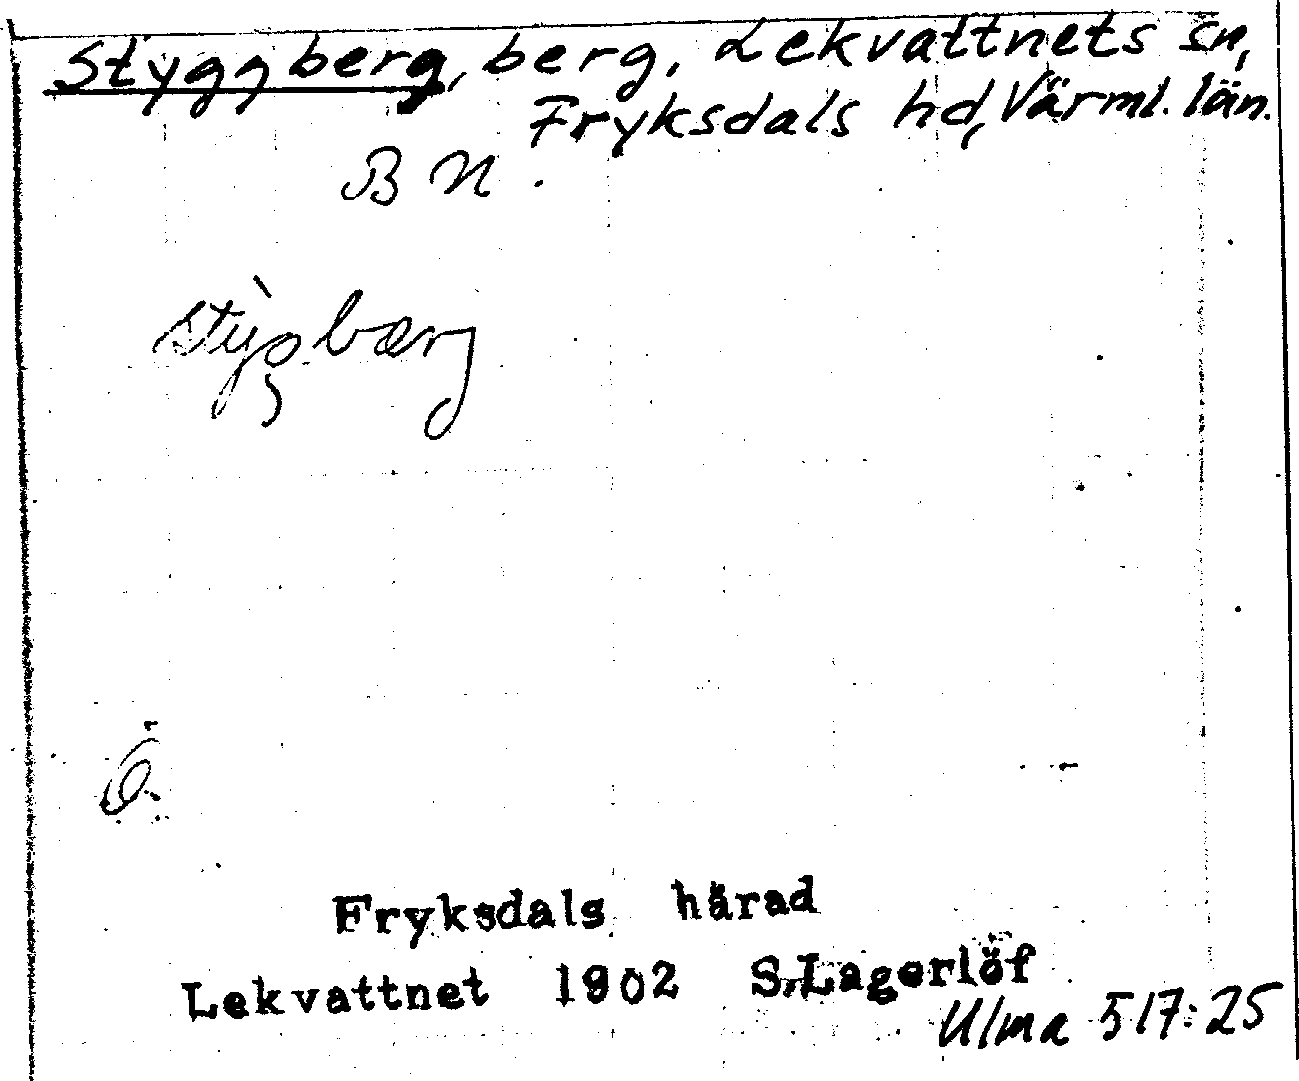 Styggberg, berg, Lekvattnets sn,
Fryksdals hd, Värml. län.
B N.
Ö.
Fryksdals härad
Lekvattnet 1902 S. Lagerlöf
Ulma 517:25